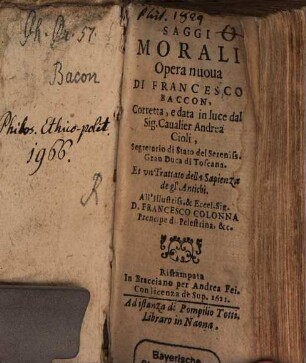 Ph. Pr. 57.
Bacon
Philos. Ethico-polit
1966.
R
Phil. 1989
SAGGI
MORALI
Opera nuoua
DI FRANCESCO
BACCON,
Corretta, e data in luce dal
Sig. Caualier Andrea
Cioli,
Segretario di Stato del Sereniss.
Gran Duca di Toscana.
Et vn Trattato della Sapienza
degl'Antichi.
All'Illustriss. & Eccel. Sig.
D. FRANCESCO COLONNA
Prencipe di Pelestrina, &c.
Ristampata
In Bracciano per Andrea Fei.
Con licenza de' Sup. 1621.
Ad istanza di Pompilio Totti.
Libraro in Nauona,
Bayerische